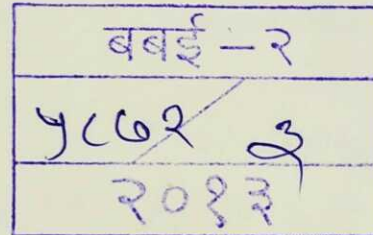 बबई - २
५८७२ / ३
२०१३